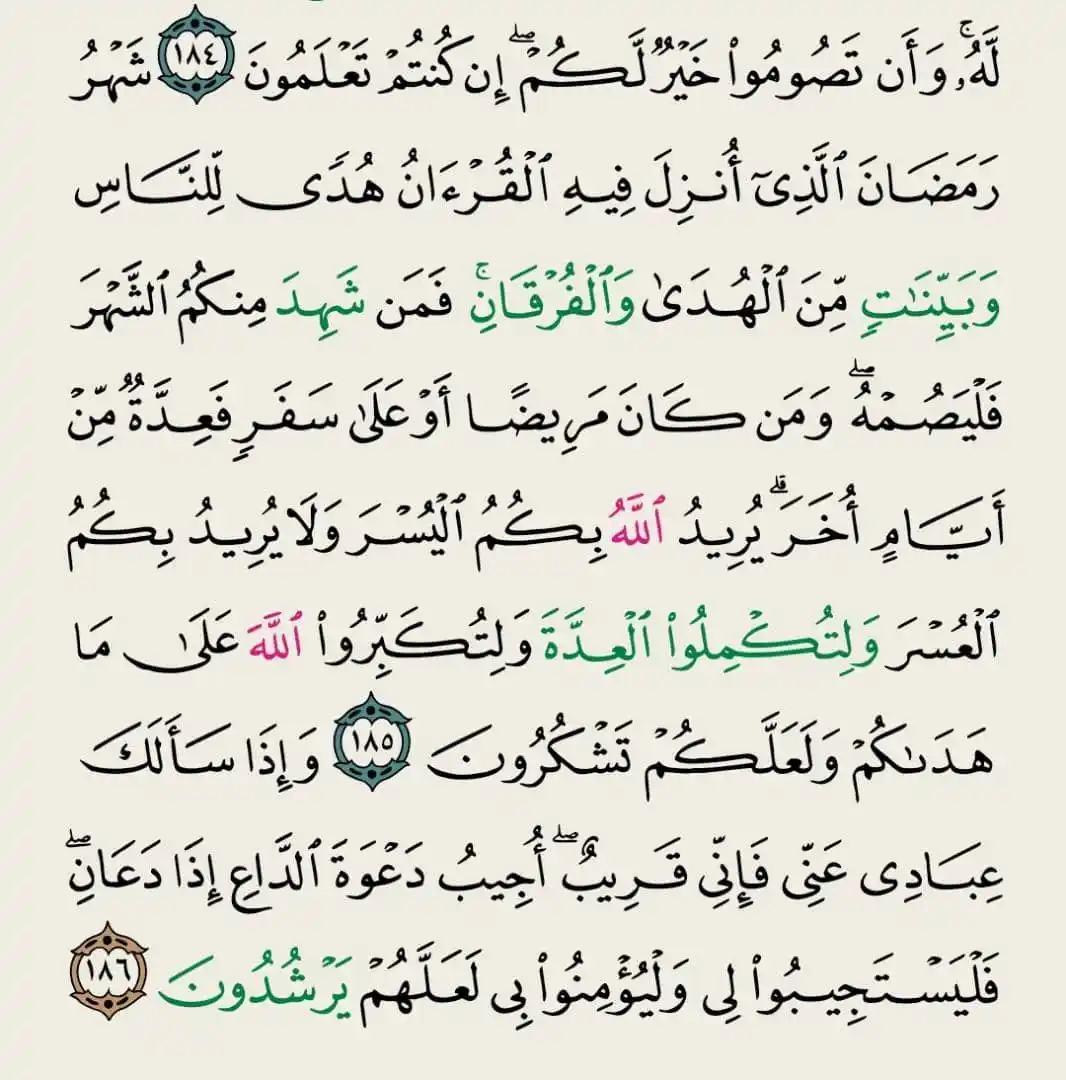 لَّهُۥۚ وَأَن تَصُومُوا۟ خَيْرٌ لَّكُمْۖ إِن كُنتُمْ تَعْلَمُونَ ١٨٤ شَهْرُ
رَمَضَانَ ٱلَّذِىٓ أُنزِلَ فِيهِ ٱلْقُرْءَانُ هُدًى لِّلنَّاسِ
وَبَيِّنَٰتٍ مِّنَ ٱلْهُدَىٰ وَٱلْفُرْقَانِۚ فَمَن شَهِدَ مِنكُمُ ٱلشَّهْرَ
فَلْيَصُمْهُۖ وَمَن كَانَ مَرِيضًا أَوْ عَلَىٰ سَفَرٍ فَعِدَّةٌ مِّنْ
أَيَّامٍ أُخَرَۗ يُرِيدُ ٱللَّهُ بِكُمُ ٱلْيُسْرَ وَلَا يُرِيدُ بِكُمُ
ٱلْعُسْرَ وَلِتُكْمِلُوا۟ ٱلْعِدَّةَ وَلِتُكَبِّرُوا۟ ٱللَّهَ عَلَىٰ مَا
هَدَىٰكُمْ وَلَعَلَّكُمْ تَشْكُرُونَ ١٨٥ وَإِذَا سَأَلَكَ
عِبَادِى عَنِّى فَإِنِّى قَرِيبٌۖ أُجِيبُ دَعْوَةَ ٱلدَّاعِ إِذَا دَعَانِۖ
فَلْيَسْتَجِيبُوا۟ لِى وَلْيُؤْمِنُوا۟ بِى لَعَلَّهُمْ يَرْشُدُونَ ١٨٦